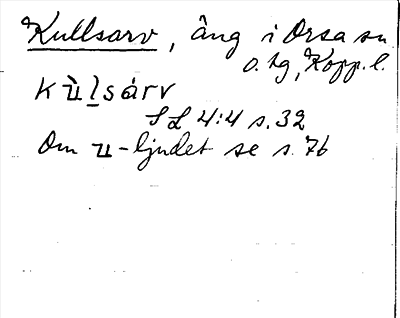 Kullsarv, äng i Orsa sn
o. tg, Kopp. l.
kùlsárv
SL 4:4 s. 32
Om u-ljudet se s. 76